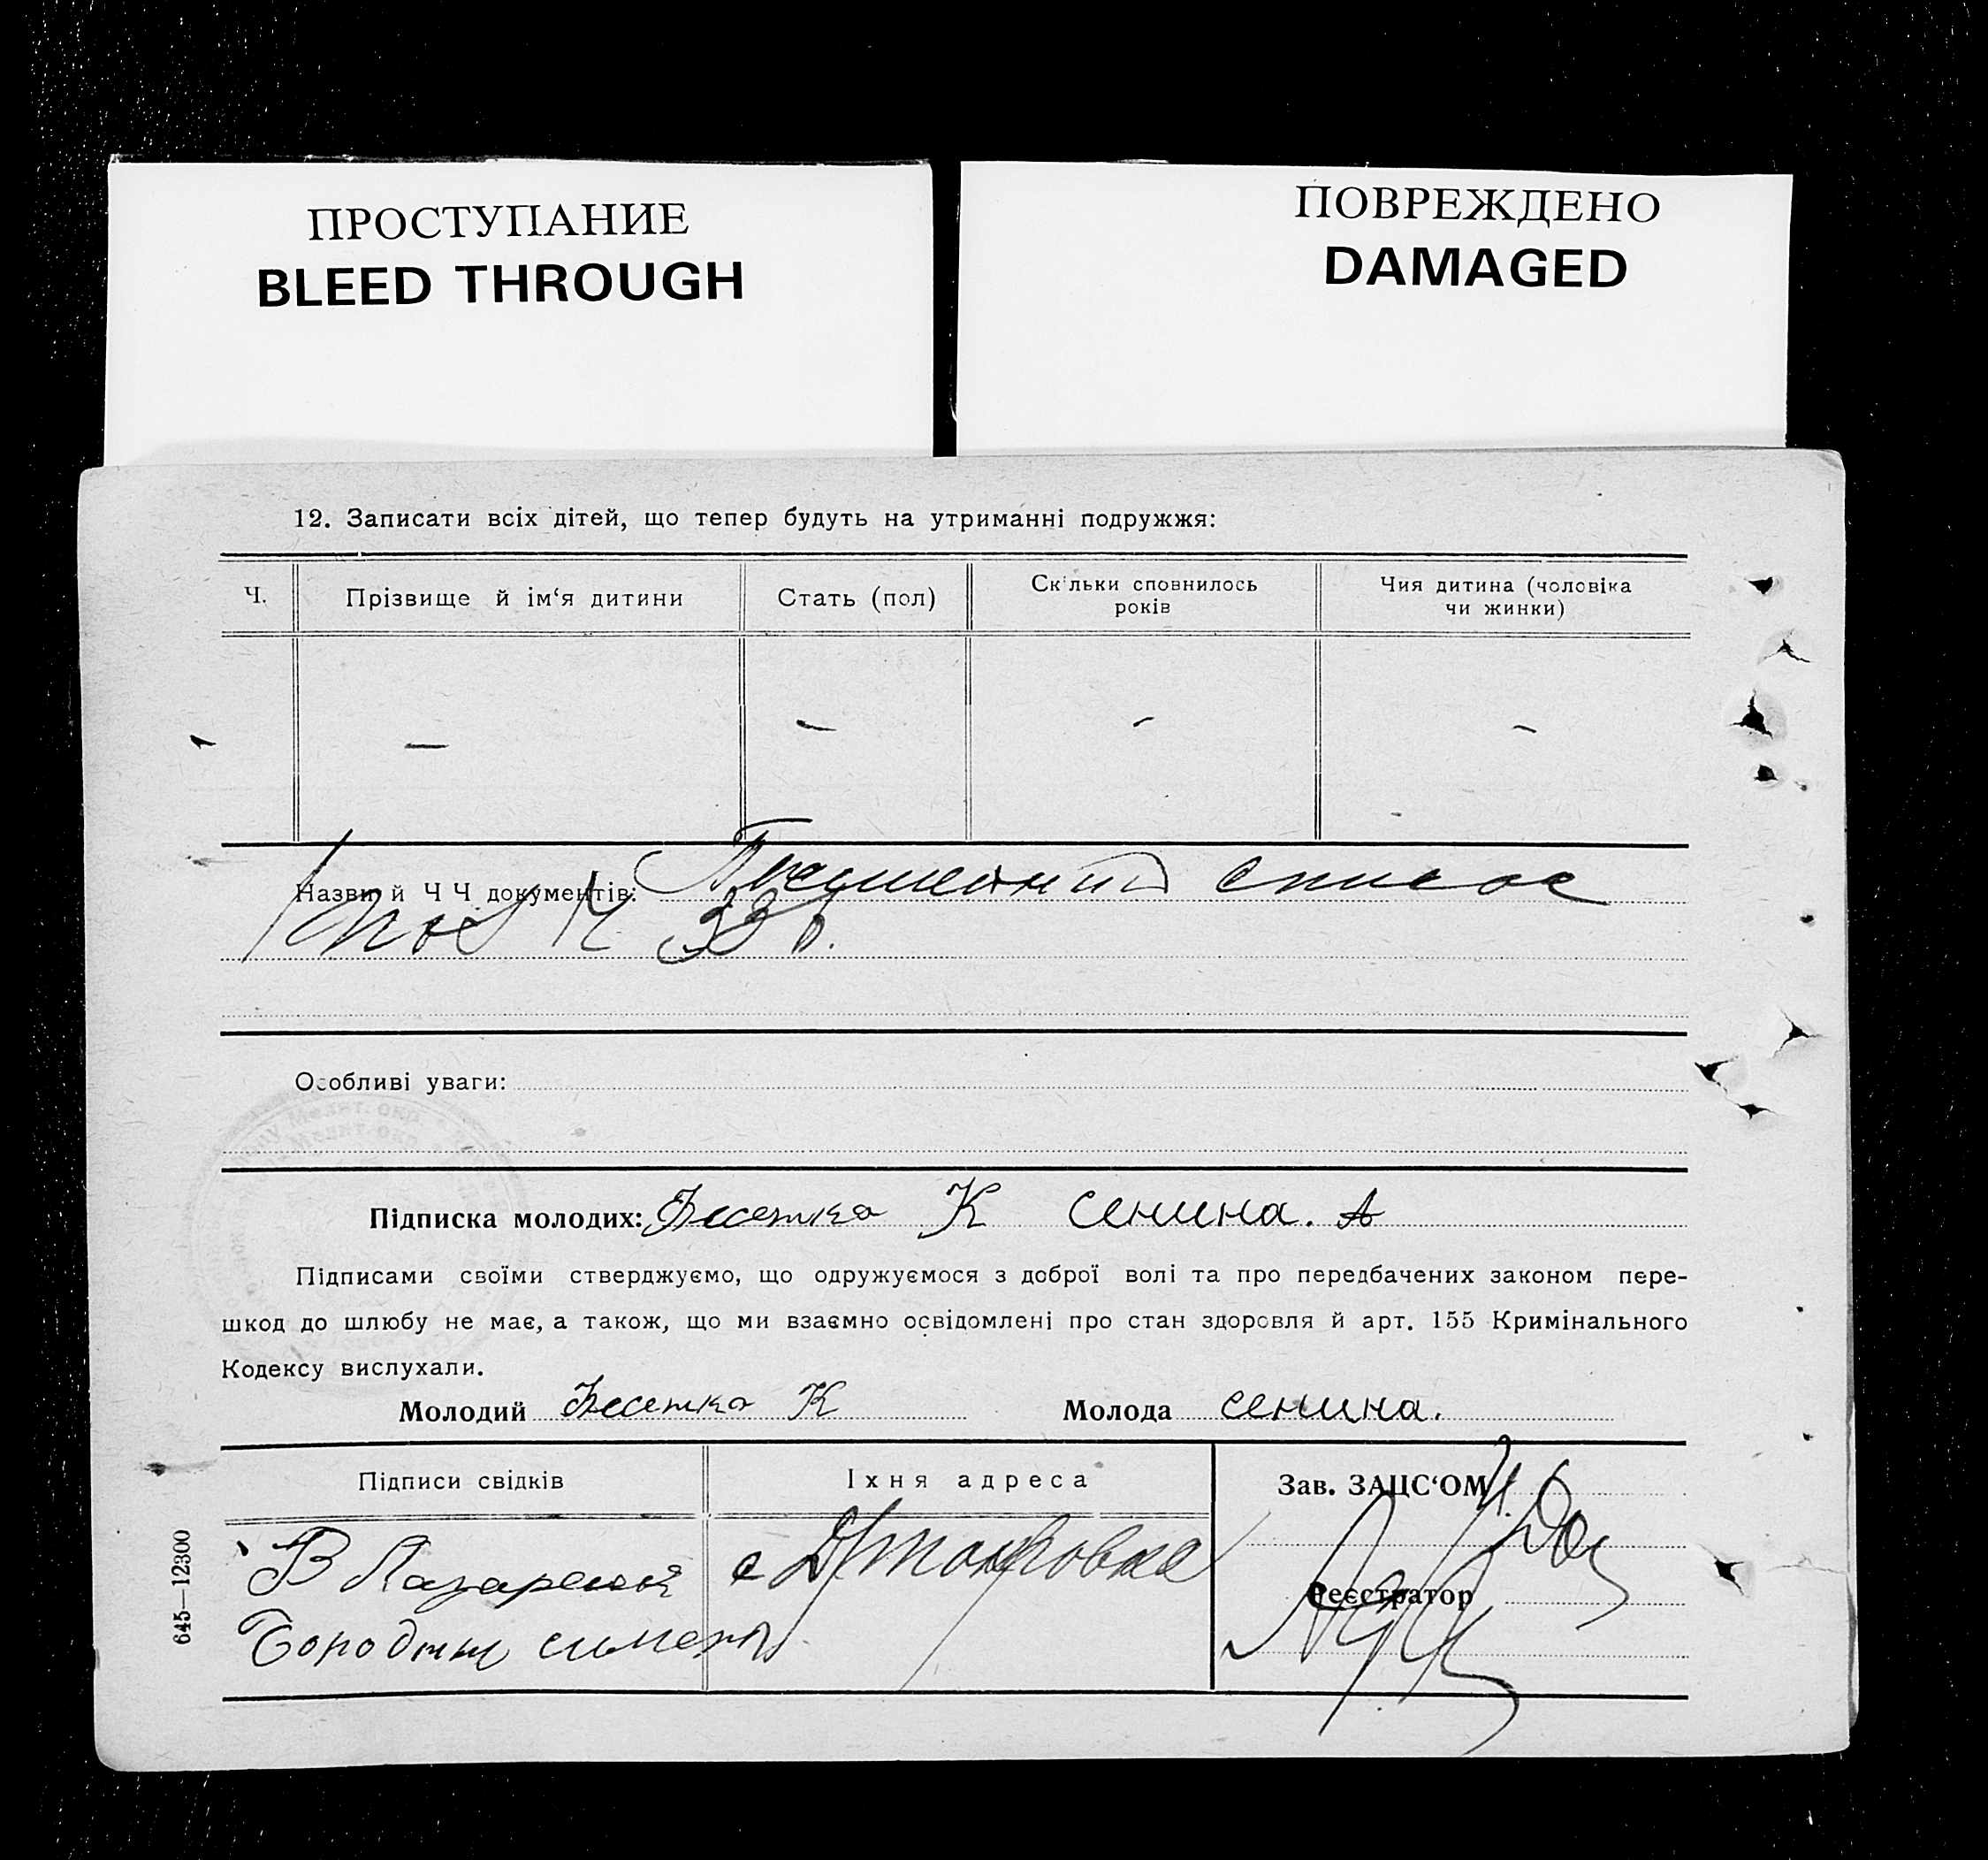 ПРОСТУПАНИЕ
BLEED THROUGH
ПОВРЕЖДЕНО
DAMAGED
12. Записати всіх дітей, що тепер будуть на утриманні подружжя:
Ч. Прізвище й ім‘я дитини Стать (пол) Скільки сповнилось років Чия дитина (чоловіка чи жинки)
— — - -
Назви й Ч Ч документів: список
Особливі уваги:
Підписка молодих: К Сенина. А
Підписами своїми стверджуємо, що одружуємося з доброї волі та про передбачених законом пере-
шкод до шлюбу не має, а також, що ми взаємно освідомлені про стан здоровля й арт. 155 Кримінального
Кодексу вислухали.
Молодий К Молода Сенина.
Підписи свідків Їхня адреса Зав. ЗАЦС‘ОМ
В
Реєстратор
645—12300